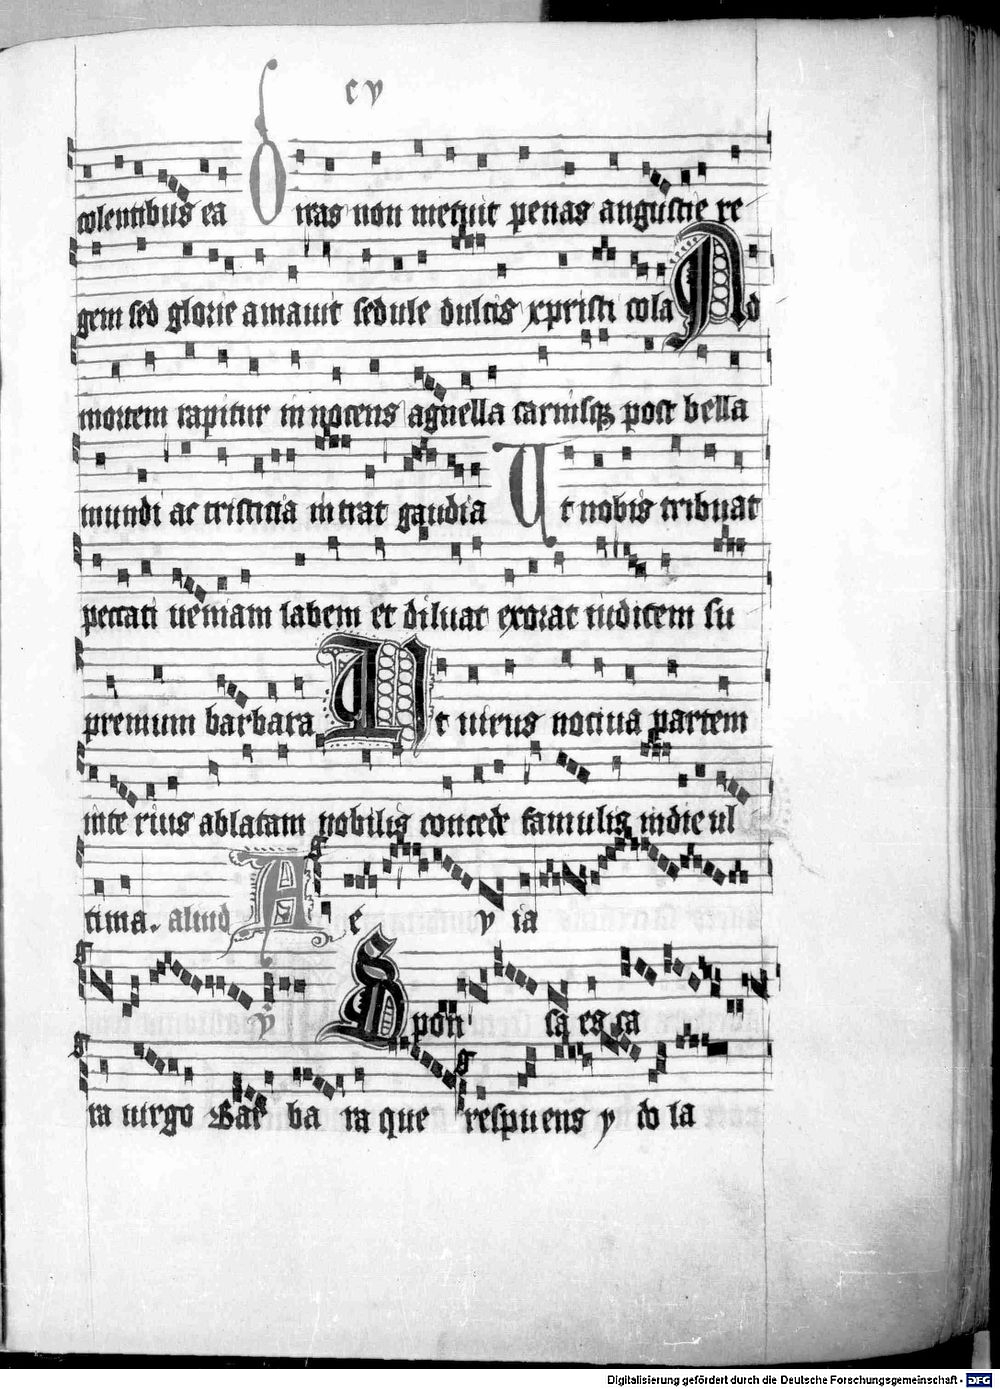 cv
colentibus ea Oras non metuit penas angustie re
gem sed glorie amauit sedule dulcis xpristi cola Ad
mortem rapitur innocens agnella carnisq; post bella
mundi ac tristicia intrat gaudia Ut nobis tribuat
peccati ueniam labem et diluat exorat iudicem su
premum barbara Ut uirus nociua partem
inte rius ablatam nobilis concede famulis indie ul
tima. aliud A e y ia
y Spon sa es sa
ra uirgo Bar ba ra que respuens y do la
Digitalisierung gefördert durch die Deutsche Forschungsgemeinschaft - DFG